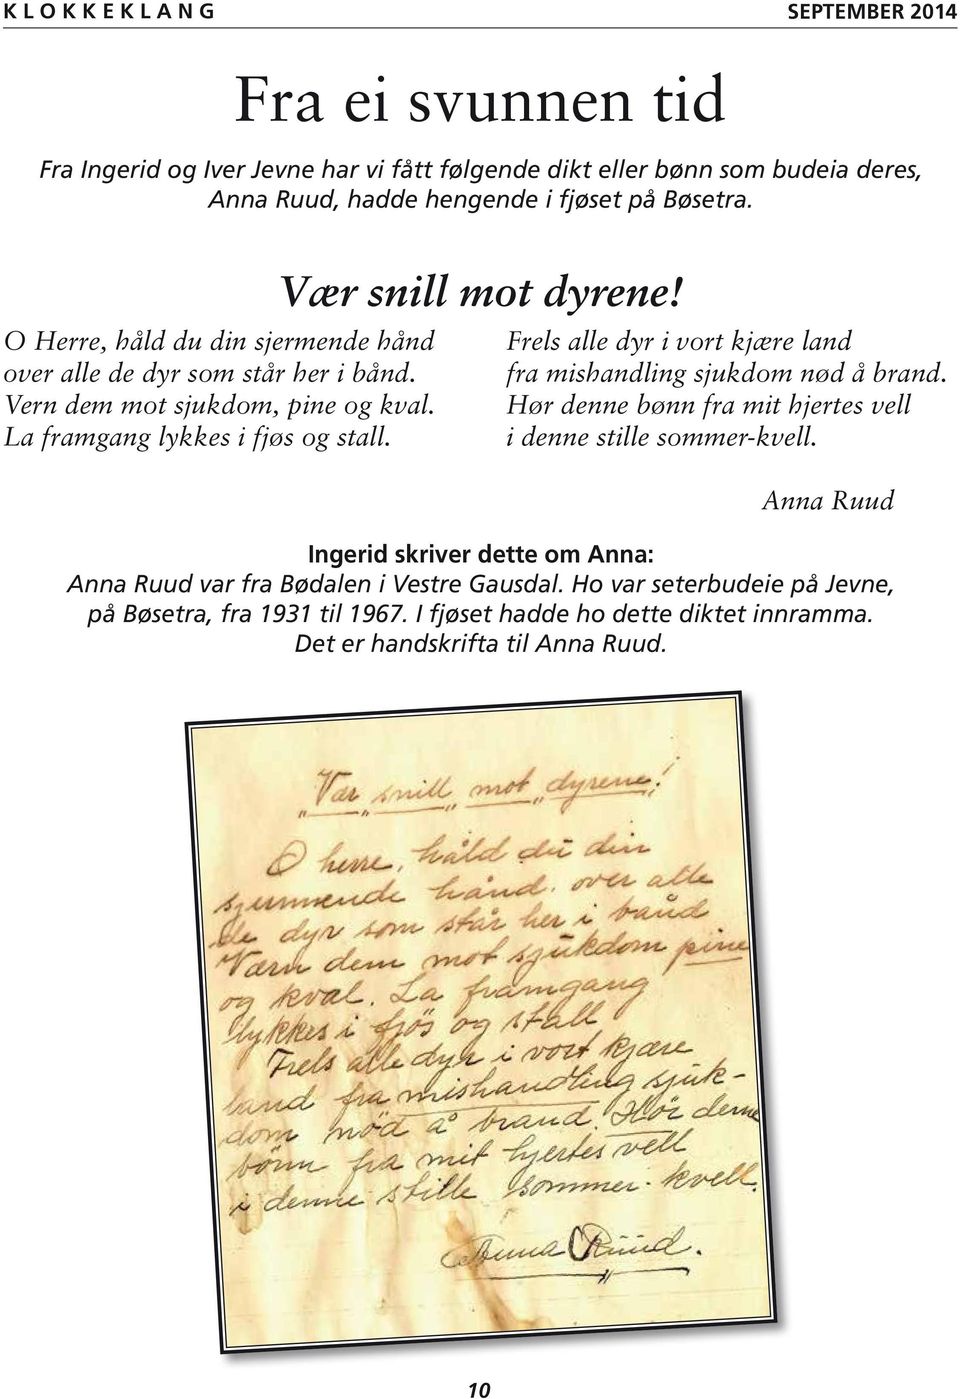 KLOKKEKLANG SEPTEMBER 2014
Fra ei svunnen tid
Fra Ingerid og Iver Jevne har vi fått følgende dikt eller bønn som budeia deres,
Anna Ruud, hadde hengende i fjøset på Bøsetra.
Vær snill mot dyrene!
O Herre, håld du din sjermende hånd
over alle de dyr som står her i bånd.
Vern dem mot sjukdom, pine og kval.
La framgang lykkes i fjøs og stall.
Frels alle dyr i vort kjære land
fra mishandling sjukdom nød å brand.
Hør denne bønn fra mit hjertes vell
i denne stille sommer-kvell.
Anna Ruud
Ingerid skriver dette om Anna:
Anna Ruud var fra Bødalen i Vestre Gausdal. Ho var seterbudeie på Jevne,
på Bøsetra, fra 1931 til 1967. I fjøset hadde ho dette diktet innramma.
Det er handskrifta til Anna Ruud.
"Vær "snill" mot "dyrene!"
O herre, håld du din
sjermmende hånd. over alle
de dyr som står her i bånd
Værn dem mot sjukdom pine
og kval. La framgang
lykkes i fjös og stall
Frels alle dyr i vort kjære
land fra mishandling sjuk-
dom nöd å brand. Hör denne
bönn fra mit hjertes vell
i denne stille sommer-kvell.
Anna Ruud.
10